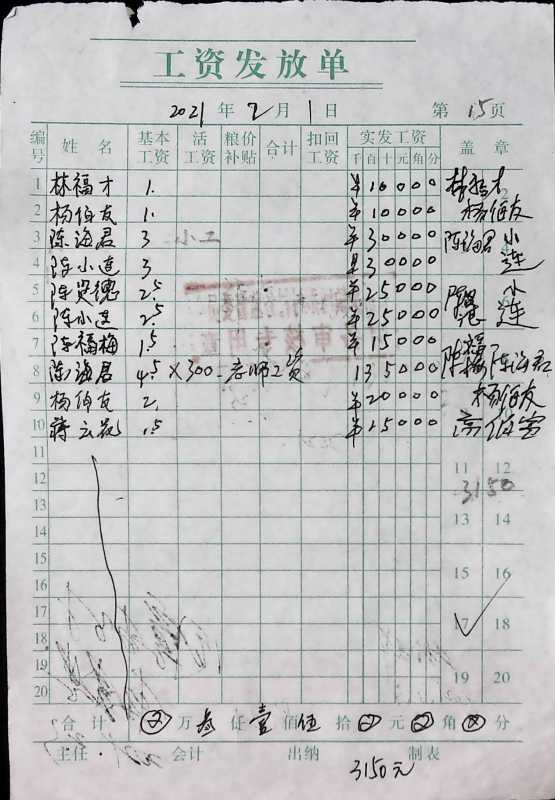 工资发放单
2021年2月1日 第15页
编号 姓名 基本工资 活工资 粮价补贴 合计 扣回工资 实发工资 千百十元角分 盖章
1 林福才 1. ¥10000 林福才
2 杨伯友 1. ¥10000 杨伯友
3 陈海君 3 小工 ¥30000 陈海君
4 陈小连 3 ¥30000 小连
5 陈贤德 2.5 ¥25000
6 陈小连 2.5 ¥25000 小连
7 陈福梅 1.5 ¥15000 陈福梅
8 陈海君 4.5×300 老师工资 135000 陈海君
9 杨伯友 2. ¥20000 杨伯友
10 蒋云花 1.5 ¥15000
11 11 12
12 3150
13 13 14
14
15 15 16
16
17 17 18
18
19 19 20
20
合计 万叁仟壹佰伍拾元角分
主任 会计 出纳 制表
3150元